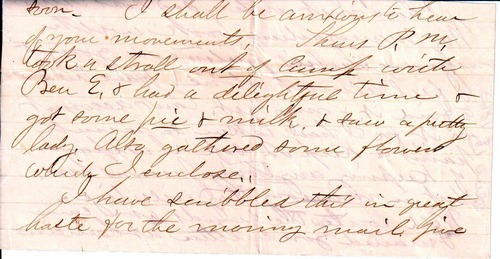 soon. I shall be anxious to hear
of your movements. This P.M.
took a stroll out of Camp with
Ben E. & had a delightful time &
got some pie & milk, & saw a pretty
lady. Also gathered some flowers
which I enclose.
I have scribbled this in great
haste for the morning mail. Give